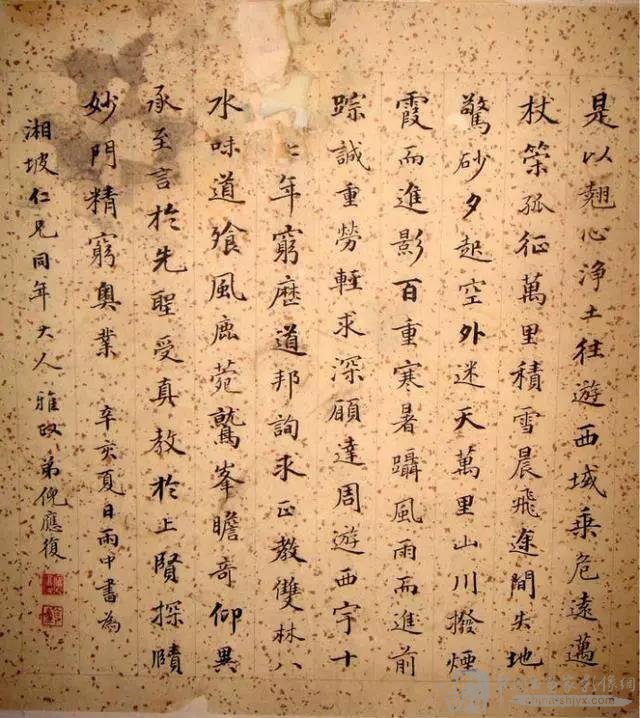 是以翹心浄土往遊西域乗危遠邁
杖策孤征萬里積雪晨飛途間失地
驚砂夕起空外迷天萬里山川撥煙
霞而進影百重寒暑躡風雨而進前
踪誠重勞輕求深願達周遊西宇十
七年窮歷道邦詢求正教雙林八
水味道飡風鹿菀鷲峯瞻奇仰異
承至言於先聖受真教於上賢探賾
妙門精窮奧業 辛亥夏日雨中書為
湘坡仁兄同年大人雅政 弟倪應復